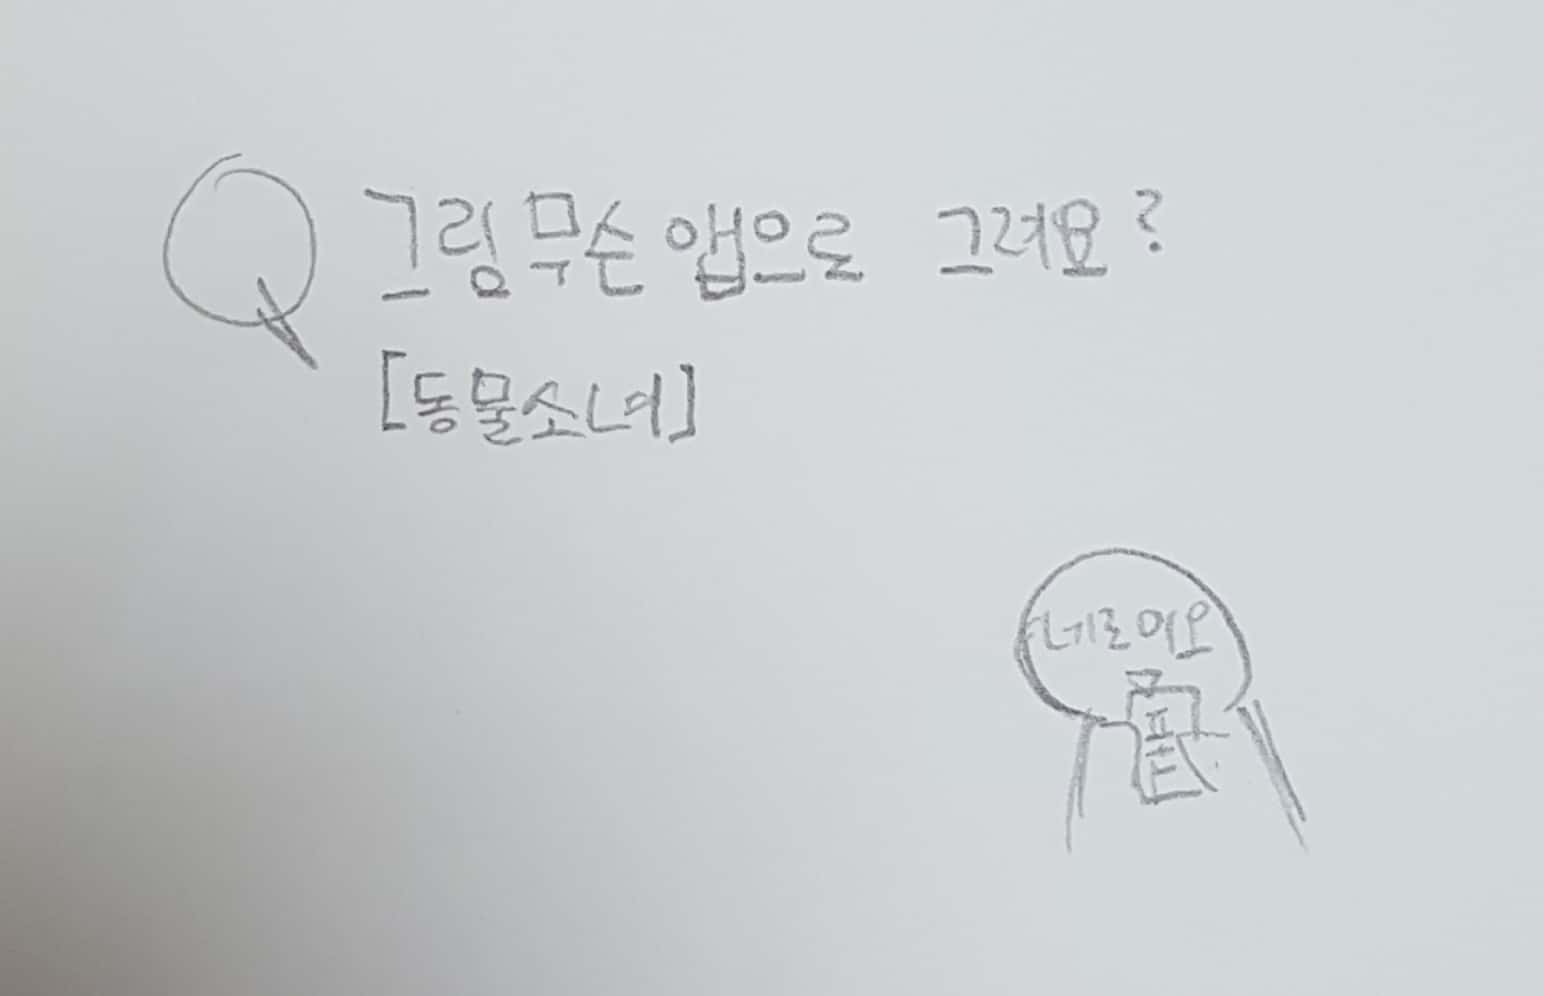 Q 그림 무슨 앱으로 그려요?
[동물소녀]
네로이오